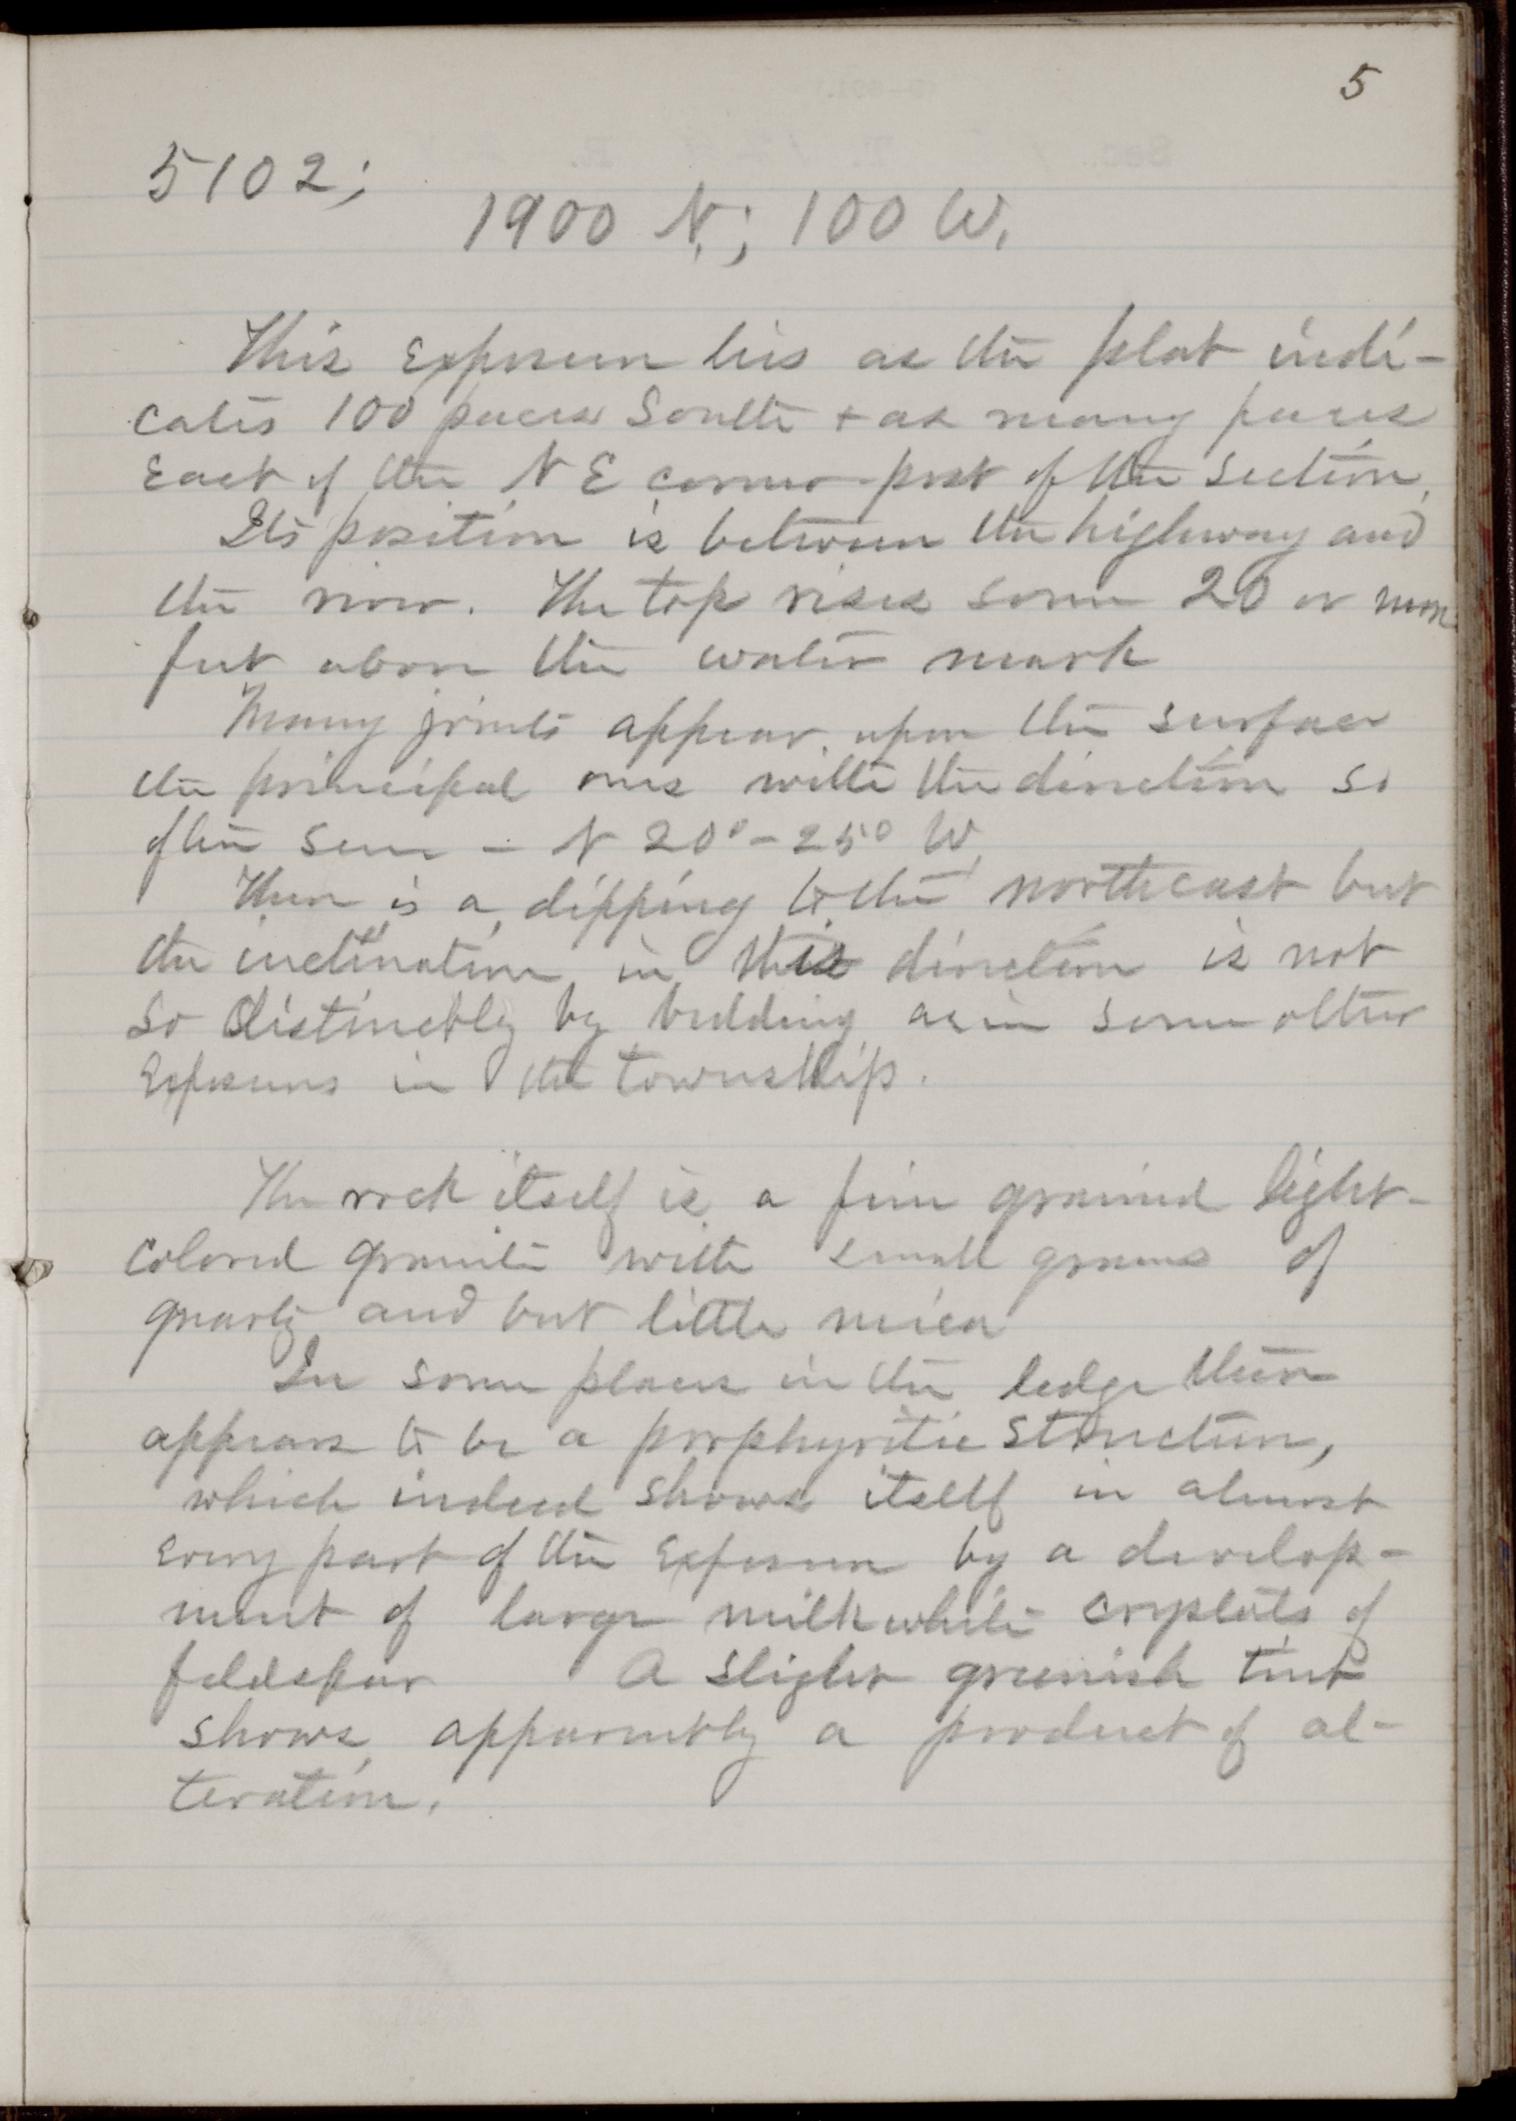 5
5102;
1900 N.; 100 W.
This exposure lies as the plat indi-
cates 100 paces South + as many paces
East of the NE corner post of the section.
Its position is between the highway and
the river. The top rises some 20 or more
feet above the water mark
Many joints appear upon the surface
the principal ones with the direction so
often seen - N 20° - 25° W.
There is a dipping to the northeast but
the inclination in this direction is not
so distinctly by bedding as in some other
Exposures in the township.
The rock itself is a fine grained light-
colored granite with small grains of
quartz and but little mica
In some places in the ledge there
appears to be a porphyritic structure,
which indeed shows itself in almost
every part of the Exposure by a develop-
ment of large milk white crystals of
feldspar A slight greenish tint
shows, apparently a product of al-
teration.